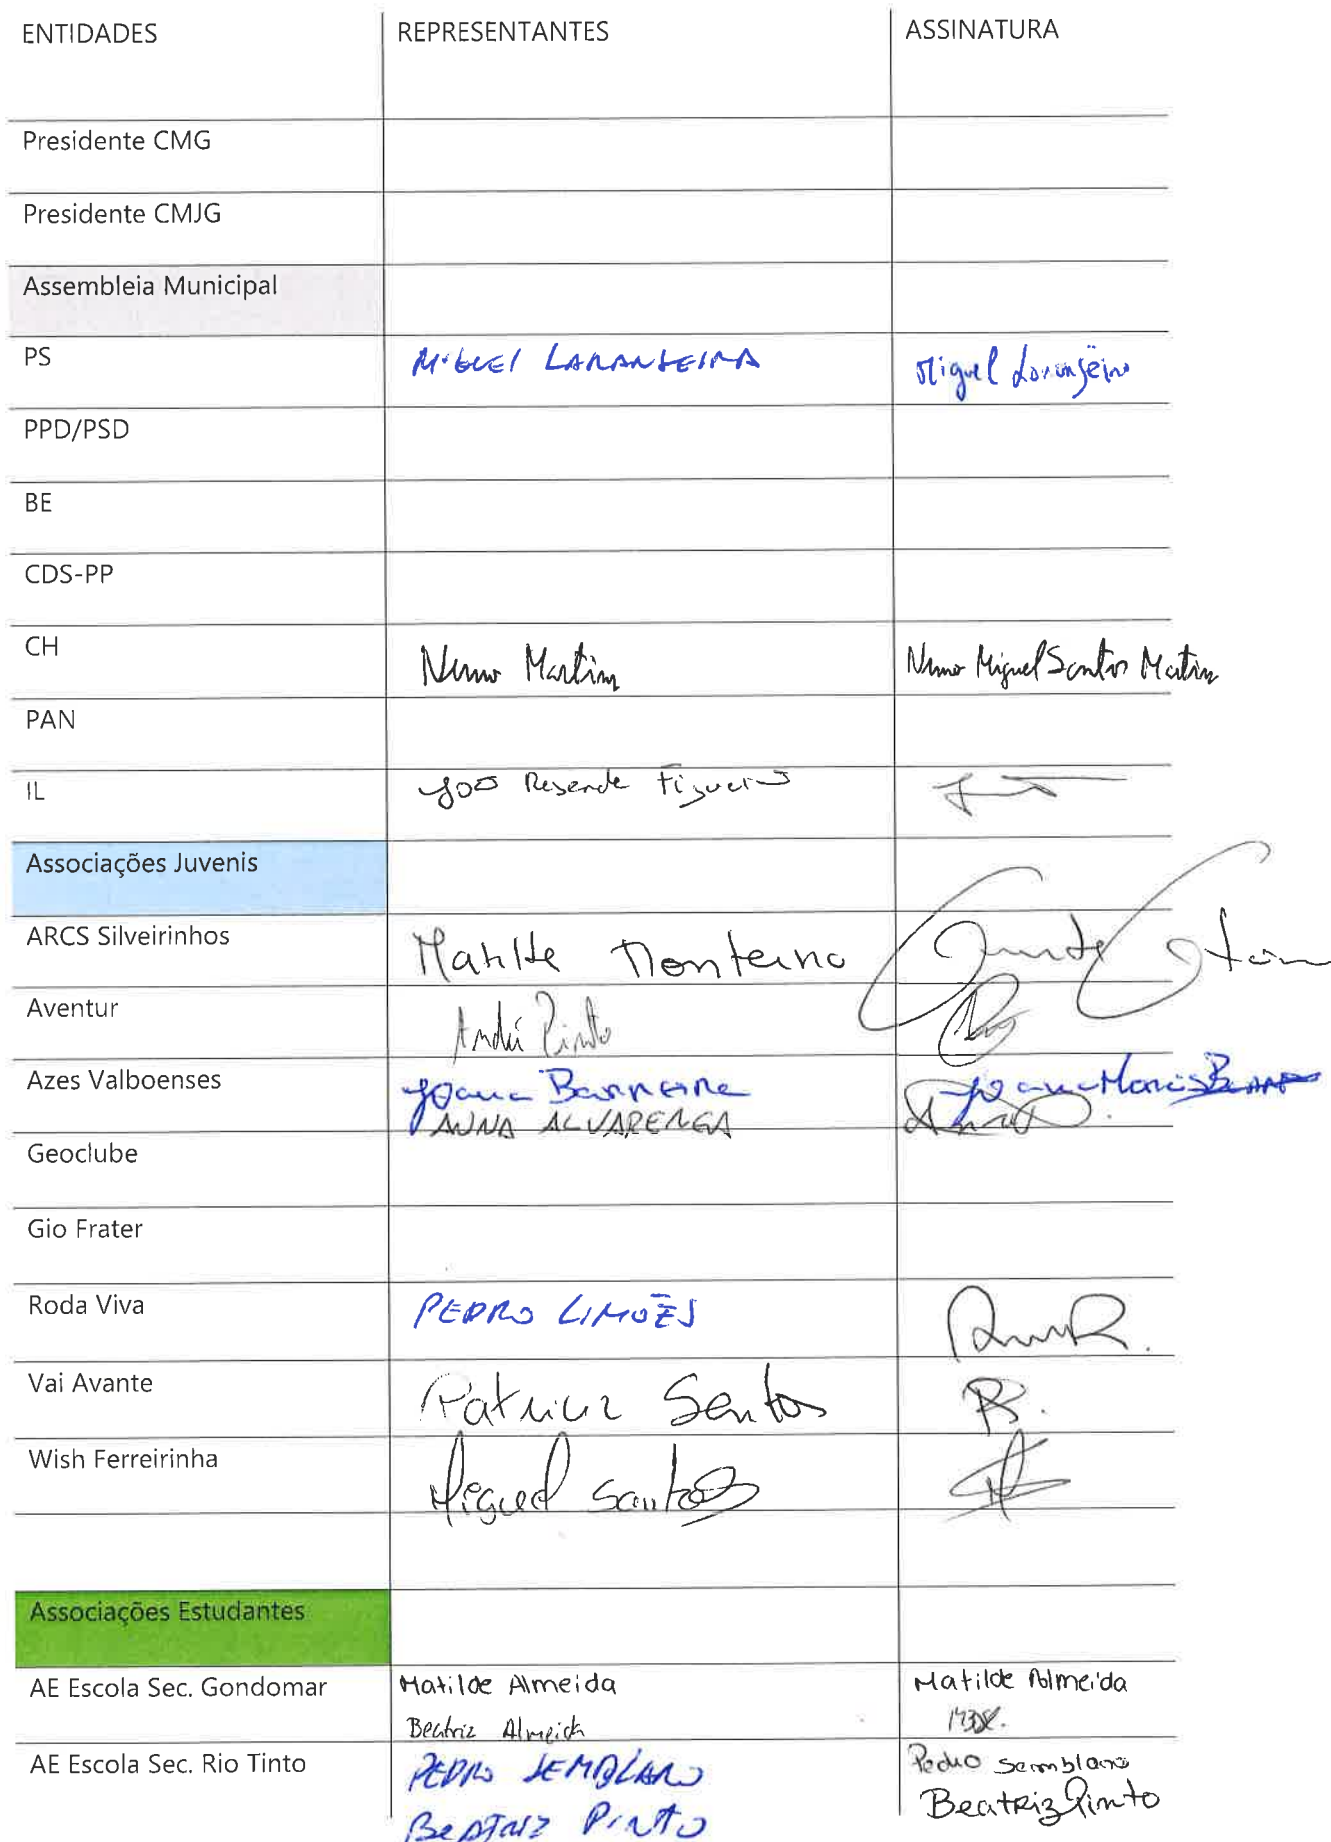 ENTIDADES REPRESENTANTES ASSINATURA
Presidente CMG
Presidente CMJG
Assembleia Municipal
PS MIGUEL LARANJEIRA Miguel Laranjeira
PPD/PSD
BE
CDS-PP
CH Nuno Martins Nuno Miguel Santos Martins
PAN
IL João Resende Figueiredo
Associações Juvenis
ARCS Silveirinhos Matilde Monteiro
Aventur André Pinto
Azes Valboenses Joana Barreira Joana Maria
ANNA ALVARENGA
Geoclube
Gio Frater
Roda Viva PEDRO LIMÕES
Vai Avante Patricia Santos
Wish Ferreirinha Miguel Santos
Associações Estudantes
AE Escola Sec. Gondomar Matilde Almeida Matilde Almeida
Beatriz Almeida
AE Escola Sec. Rio Tinto PEDRO SEMBLANO Pedro Semblano
Beatriz Pinto Beatriz Pinto